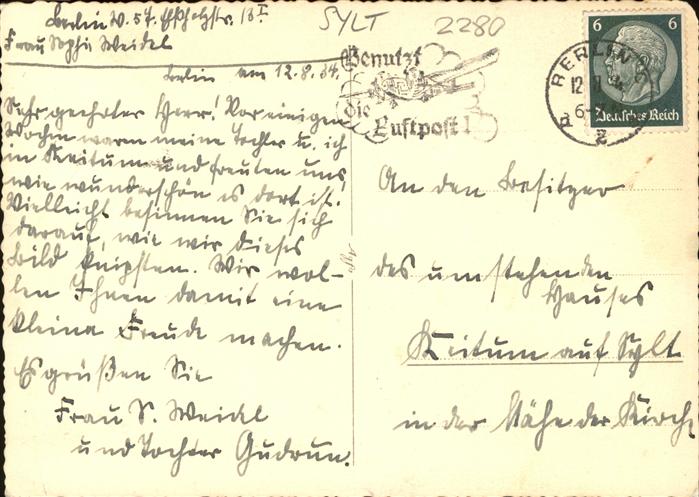 Berlin W. 57. Elßholzstr. 18 I
Frau Sophie Weidel
Berlin am 12.8.34.
Sehr geehrter Herr! Vor einigen
Wochen waren meine Tochter u. ich
in Keitum und freuten uns,
wie wunderschön es dort ist.
Vielleicht besinnen Sie sich
darauf, wie wir dieses
Bild knipsten. Wir wol-
len Ihnen damit eine
kleine Freude machen.
Es grüßen Sie
Frau S. Weidel
und Tochter Gudrun.
SYLT 2280
Benutzt
die
Luftpost!
BERLIN
12
6-7
z
6 6
Deutsches Reich
An den Besitzer
des umstehenden
Hauses
Keitum auf Sylt
in der Nähe der Kirche